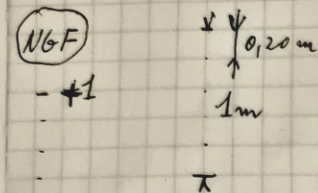 NGF
0,20 m
- +1
1m